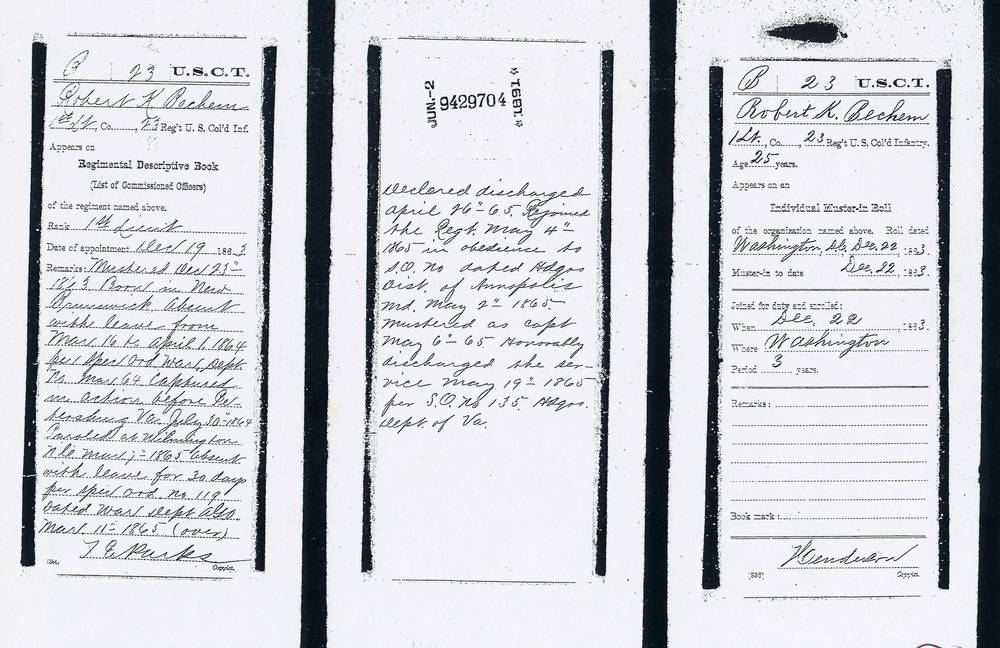 B 23 U.S.C.T.
Robert K Bechem
1st Lt, Co......, 23 Reg't U. S. Col'd Inf.
Appears on
Regimental Descriptive Book
(List of Commissioned Officers)
of the regiment named above.
Rank 1st Lieut
Date of appointment Dec 19 1863
Remarks: Mustered Dec 23"
1863. Born in New
Brunswick Absent
with leave from
Mar. 16 to April 1. 1864
per Spec Ord War Dept.
No. Mar 64 Captured
in action before Pe-
tersburg Va July 30-1864
Paroled at Wilmington
N.C. Mar 1" 1865 Absent
with leave for 30 days
per Spec Ord. No. 119
dated War Dept
Mar. 11" 1865. (over)
T E Parks
Copyist.
JUN.-2 9429704 *1891*
Declared discharged
April 26" 65. Rejoined
the Regt. May 4"
1865 in obedience to
S.O. No dated Hdqrs
Dist. of Annapolis
Md. May 2" 1865
Mustered as Capt
May 6" 65 Honorably
discharged the ser-
vice May 19" 1865
per S.O. No 135. Hdqrs.
Dept. of Va.
B 23 U.S.C.T.
Robert K. Bechem
1 Lt., Co......, 23 Reg't U. S. Col'd Infantry.
Age 25 years.
Appears on an
Individual Muster-in Roll
of the organization named above. Roll dated
Washington, D.C. Dec. 22, 1863.
Muster-in to date Dec. 22, 1863.
Joined for duty and enrolled:
When Dec. 22, 1863.
Where Washington
Period 3 years.
Remarks:
Book mark:
Henderson
(336) Copyist.